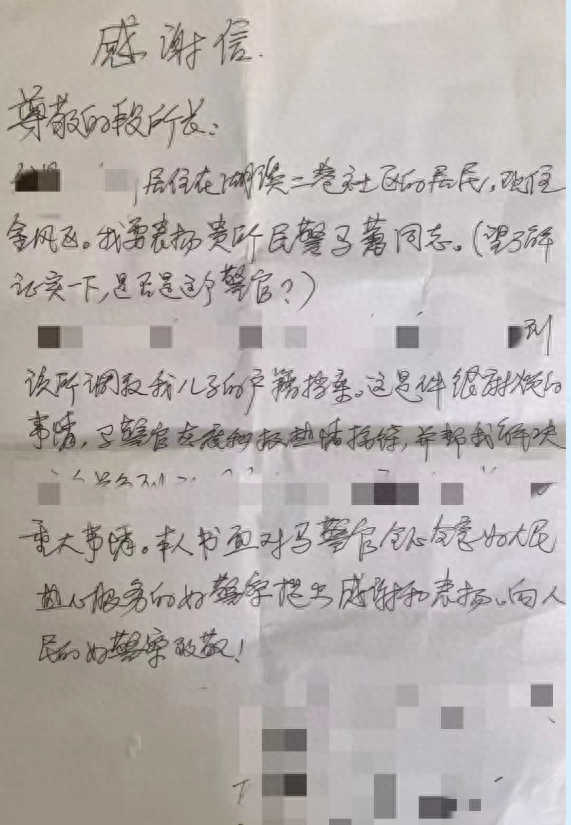 感谢信.
尊敬的段所长:
居住在湖滨二巷社区的居民,现住
金凤区。我要表扬贵所民警马蕾同志。(望了解
证实一下,是否是这个警官?)
到
该所调取我儿子的户籍档案。这是件很麻烦的
事情,马警官态度积极热情接待,并帮我解决
重大事情。本人书面对马警官全心全意为人民
热心服务的好警察提出感谢和表扬。向人
民的好警察致敬!